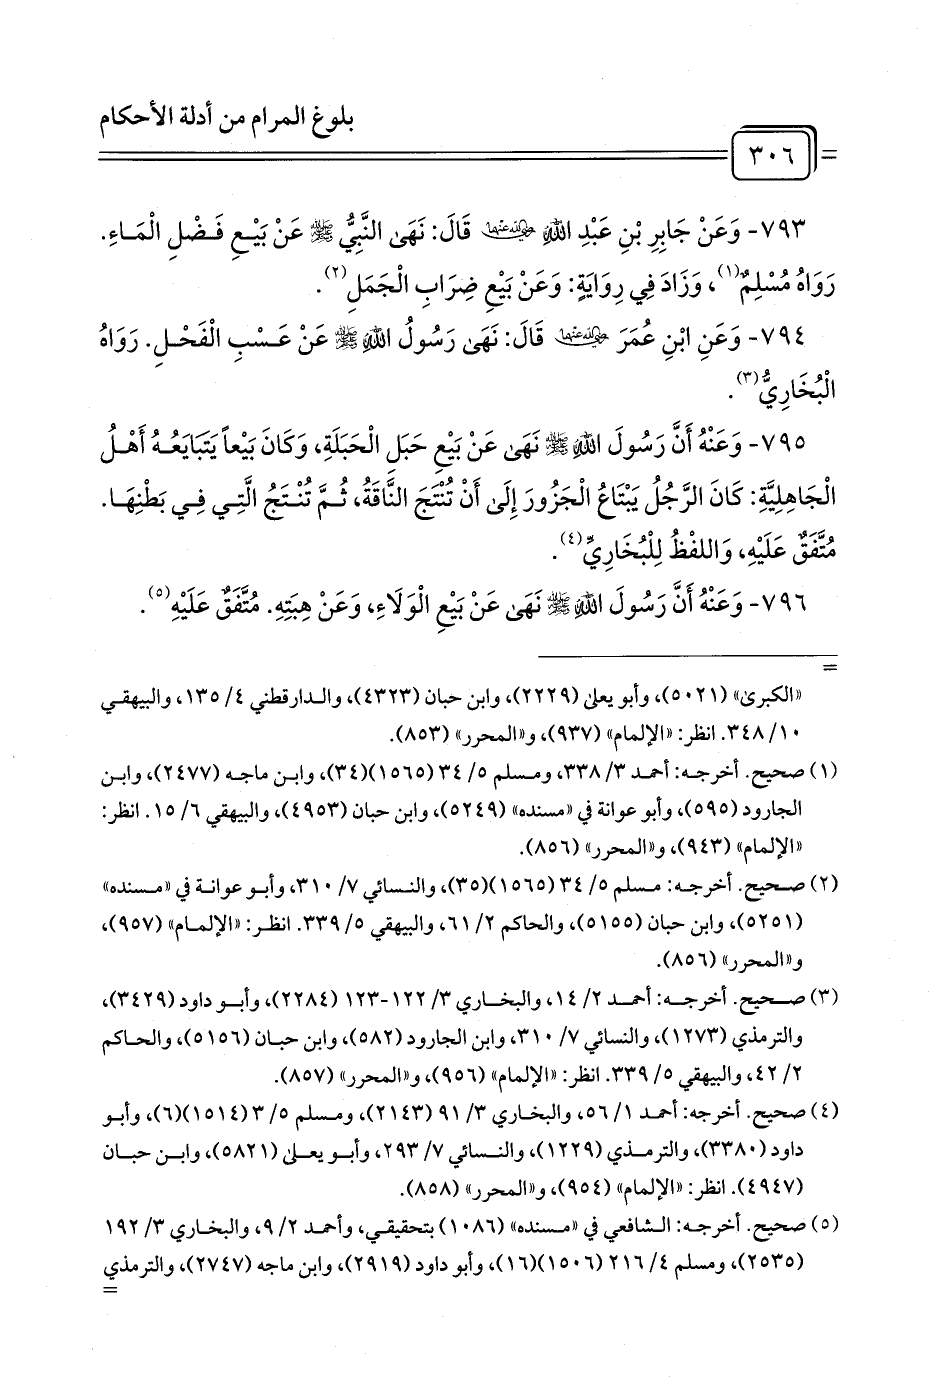 بلوغ المرام من أدلة الأحكام
٣٠٦
٧٩٣- وَعَنْ جَابِرِ بْنِ عَبْدِ اللهِ رضي الله عنهما قَالَ: نَهَى النَّبِيُّ ﷺ عَنْ بَيْعِ فَضْلِ الْمَاءِ.
رَوَاهُ مُسْلِمٌ(١)، وَزَادَ فِي رِوَايَةٍ: وَعَنْ بَيْعِ ضِرَابِ الْجَمَلِ(٢).
٧٩٤- وَعَنِ ابْنِ عُمَرَ رضي الله عنهما قَالَ: نَهَى رَسُولُ اللهِ ﷺ عَنْ عَسْبِ الْفَحْلِ. رَوَاهُ
الْبُخَارِيُّ(٣).
٧٩٥- وَعَنْهُ أَنَّ رَسُولَ اللهِ ﷺ نَهَى عَنْ بَيْعِ حَبَلِ الْحَبَلَةِ، وَكَانَ بَيْعاً يَتَبَايَعُهُ أَهْلُ
الْجَاهِلِيَّةِ: كَانَ الرَّجُلُ يَبْتَاعُ الْجَزُورَ إِلَى أَنْ تُنْتَجَ النَّاقَةُ، ثُمَّ تُنْتَجُ الَّتِي فِي بَطْنِهَا.
مُتَّفَقٌ عَلَيْهِ، وَاللفْظُ لِلْبُخَارِيِّ(٤).
٧٩٦- وَعَنْهُ أَنَّ رَسُولَ اللهِ ﷺ نَهَى عَنْ بَيْعِ الْوَلَاءِ، وَعَنْ هِبَتِهِ. مُتَّفَقٌ عَلَيْهِ(٥).
=
«الكبرى» (٥٠٢١)، وأبو يعلى (٢٢٢٩)، وابن حبان (٤٣٢٣)، والدارقطني ٤/ ١٣٥، والبيهقي
١٠/ ٣٤٨. انظر: «الإلمام» (٩٣٧)، و«المحرر» (٨٥٣).
(١) صحيح. أخرجه: أحمد ٣/ ٣٣٨، ومسلم ٥/ ٣٤ (١٥٦٥)(٣٤)، وابن ماجه (٢٤٧٧)، وابن
الجارود (٥٩٥)، وأبو عوانة في «مسنده» (٥٢٤٩)، وابن حبان (٤٩٥٣)، والبيهقي ٦/ ١٥. انظر:
«الإلمام» (٩٤٣)، و«المحرر» (٨٥٦).
(٢) صحيح. أخرجه: مسلم ٥/ ٣٤ (١٥٦٥)(٣٥)، والنسائي ٧/ ٣١٠، وأبو عوانة في «مسنده»
(٥٢٥١)، وابن حبان (٥١٥٥)، والحاكم ٢/ ٦١، والبيهقي ٥/ ٣٣٩. انظر: «الإلمام» (٩٥٧)،
و«المحرر» (٨٥٦).
(٣) صحيح. أخرجه: أحمد ٢/ ١٤، والبخاري ٣/ ١٢٢-١٢٣ (٢٢٨٤)، وأبو داود (٣٤٢٩)،
والترمذي (١٢٧٣)، والنسائي ٧/ ٣١٠، وابن الجارود (٥٨٢)، وابن حبان (٥١٥٦)، والحاكم
٢/ ٤٢، والبيهقي ٥/ ٣٣٩. انظر: «الإلمام» (٩٥٦)، و«المحرر» (٨٥٧).
(٤) صحيح. أخرجه: أحمد ١/ ٥٦، والبخاري ٣/ ٩١ (٢١٤٣)، ومسلم ٥/ ٣ (١٥١٤)(٦)، وأبو
داود (٣٣٨٠)، والترمذي (١٢٢٩)، والنسائي ٧/ ٢٩٣، وأبو يعلى (٥٨٢١)، وابن حبان
(٤٩٤٧). انظر: «الإلمام» (٩٥٤)، و«المحرر» (٨٥٨).
(٥) صحيح. أخرجه: الشافعي في «مسنده» (١٠٨٦) بتحقيقي، وأحمد ٢/ ٩، والبخاري ٣/ ١٩٢
(٢٥٣٥)، ومسلم ٤/ ٢١٦ (١٥٠٦)(١٦)، وأبو داود (٢٩١٩)، وابن ماجه (٢٧٤٧)، والترمذي
=